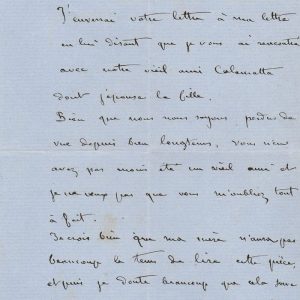 J'enverrai votre lettre à ma mère
en lui disant que je vous ai rencontré
avec notre vieil ami Calamatta
dont j'épouse la fille.
Bien que nous nous soyons perdus de
vue depuis bien longtems, vous n'en
avez pas moins été un vieil ami et
je ne veux pas que vous m'oubliez tout
à fait.
Je crois bien que ma mère n'aura pas
beaucoup le tems de lire cette pièce,
et puis je doute beaucoup que cela